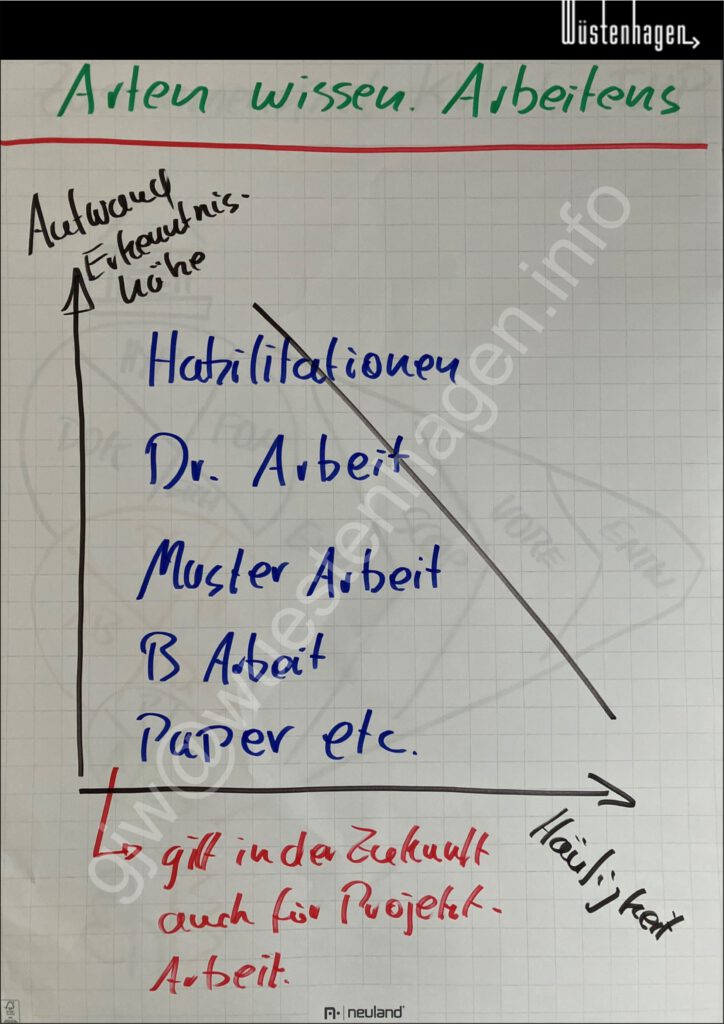 Wüstenhagen
Arten wissen. Arbeitens
Aufwand
Erkenntnis-
höhe
Habilitationen
Dr. Arbeit
Master Arbeit
B Arbeit
Paper etc.
Häufigkeit
gilt in der Zukunft
auch für Projekt-
Arbeit.
gjw@wuestenhagen.info
neuland